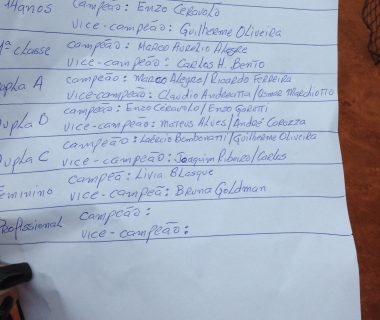 14anos Campeão: Enzo Ceravolo
Vice-campeão: Guilherme Oliveira
1ª classe campeão: Marco Aurélio Alegre
Vice-campeão: Carlos H. Bento
Dupla A campeão: Marco Alegre/Ricardo Ferreira
Vice-campeão: Claudio Andreatta/Osmar Marchiotto
upla D campeão: Enzo Ceravolo/Enzo Garotti
vice-campeão: Mateus Alves/André Corazza
campeão: Laércio Bombonatti/Guilherme Oliveira
upla C vice-campeão: Joaquim Ribeiro/Carlos
campeã: Livia Blasque
eminino vice-campeã: Bruna Goldman
Profissional campeão:
vice-campeão: